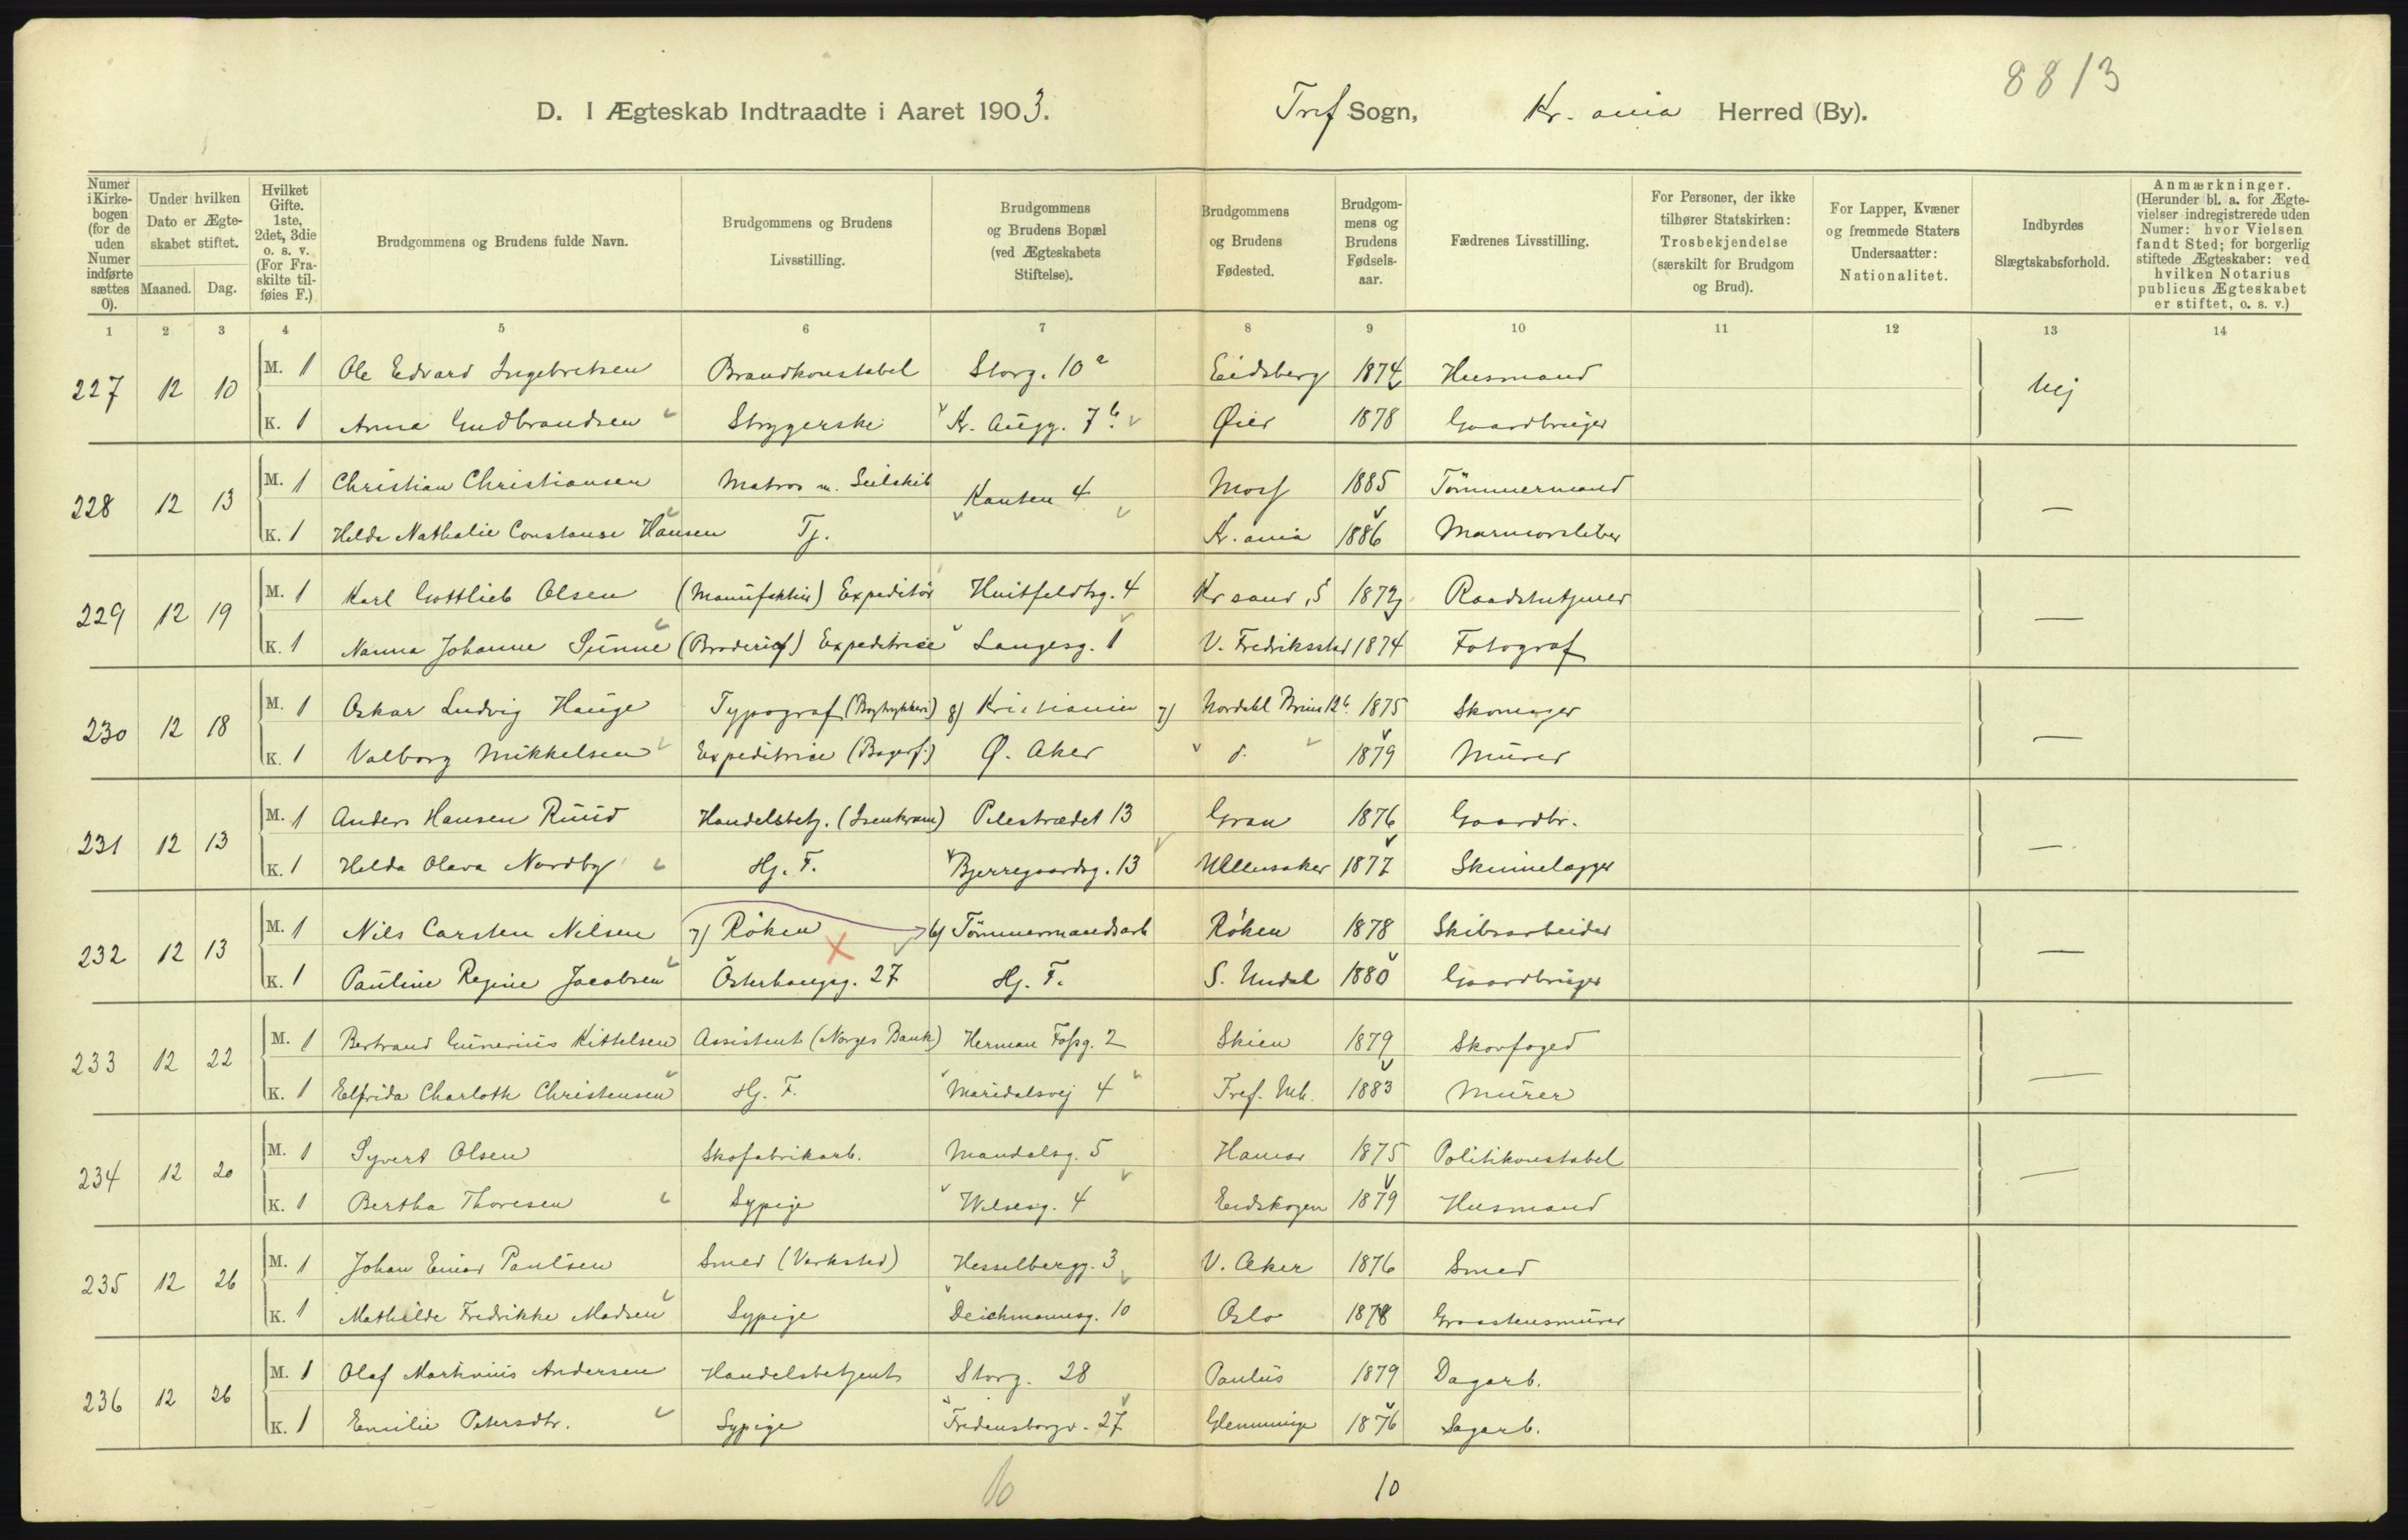 8813
D. I Ægteskab Indtraadte i Aaret 1903. Tref Sogn, Kr. ania Herred (By).
Numer i Kirkebogen (for de uden Numer indførte sættes 0). Under hvilken Dato er Ægteskabet stiftet. Maaned. Dag. Hvilket Gifte. 1ste, 2det, 3die o. s. v. (For Fraskilte tilføies F.) Brudgommens og Brudens fulde Navn. Brudgommens og Brudens Livsstilling. Brudgommens og Brudens Bopæl (ved Ægteskabets Stiftelse). Brudgommens og Brudens Fødested. Brudgommens og Brudens Fødselsaar. Fædrenes Livsstilling. For Personer, der ikke tilhører Statskirken: Trosbekjendelse (særskilt for Brudgom og Brud). For Lapper, Kvæner og fremmede Staters Undersaatter: Nationalitet. Indbyrdes Slægtskabsforhold. Anmærkninger. (Herunder bl. a. for Ægtevielser indregistrerede uden Numer: hvor Vielsen fandt Sted; for borgerlig stiftede Ægteskaber: ved hvilken Notarius publicus Ægteskabet er stiftet, o. s. v.)
1 2 3 4 5 6 7 8 9 10 11 12 13 14
227 12 10 M. 1 Ole Edvard Ingebretsen Brandkonstabel Storg. 10a Eidsberg 1874 Husmand Nej
K. 1 Anna Gudbrandsen Strygerske Kr. Augg. 7b Øier 1878 Gaardbruger
228 12 13 M. 1 Christian Christiansen Matros m. Seilskib Kanten 4 Moss 1885 Tömmermand —
K. 1 Helda Nathalie Constanse Hansen Tj. Kr. ania 1886 Marmorsliber
229 12 19 M. 1 Karl Gottlieb Olsen (Manufaktur) Expeditör Huitfeldtsg. 4 Kr sand, S 1872 Raadstutjener —
K. 1 Nanna Johanne Sunne (Broderif) Expeditrice Langesg. 1 V. Fredriksstad 1874 Fotograf
230 12 18 M. 1 Oskar Ludvig Hauge Typograf (Bogtrykkeri) 8) Kristiania 7) Nordahl Bruns 12b. 1875 Skomager —
K. 1 Valborg Mikkelsen Expeditrice (Bagerf.) Ø. Aker d. 1879 Murer
231 12 13 M. 1 Anders Hansen Ruud Handelsbetj. (Isenkram) Pilestrædet 13 Gran 1876 Gaardbr. —
K. 1 Helda Olava Nordby Hj. F. Bjerregaardsg. 13 Ullensaker 1877 Skinnelægger
232 12 13 M. 1 Nils Carsten Nilsen 7) Röken 6) Tömmermandsarb Röken 1878 Skibsarbeider —
K. 1 Pauline Regine Jacobsen Österhausg. 27 Hj. F. S. Undal 1880 Gaardbruger
233 12 22 M. 1 Bertrand Gunerius Kittelsen Assistent (Norges Bank) Herman Fossg. 2 Skien 1879 Skovfoged —
K. 1 Elfrida Charloth Christensen Hj. F. Maridalsvej 4 Tref. Mh. 1883 Murer
234 12 20 M. 1 Syvert Olsen Skofabrikarb. Mandalsg. 5 Hamar 1875 Politikonstabel —
K. 1 Bertha Thoresen Sypige Wilsesg. 4 Eidskogen 1879 Husmand
235 12 26 M. 1 Johan Einar Paulsen Smed (Verksted) Hesselbergg. 3 V. Aker 1876 Smed
K. 1 Mathilde Fredrikke Madsen Sypige Deichmansg. 10 Oslo 1878 Graastensmurer
236 12 26 M. 1 Olaf Martinius Andersen Handelsbetjent Storg. 28 Paulus 1879 Dagarb.
K. 1 Emilie Petersdtr. Sypige Fredensborgv. 27 Glemminge 1876 Sagarb.
10 10